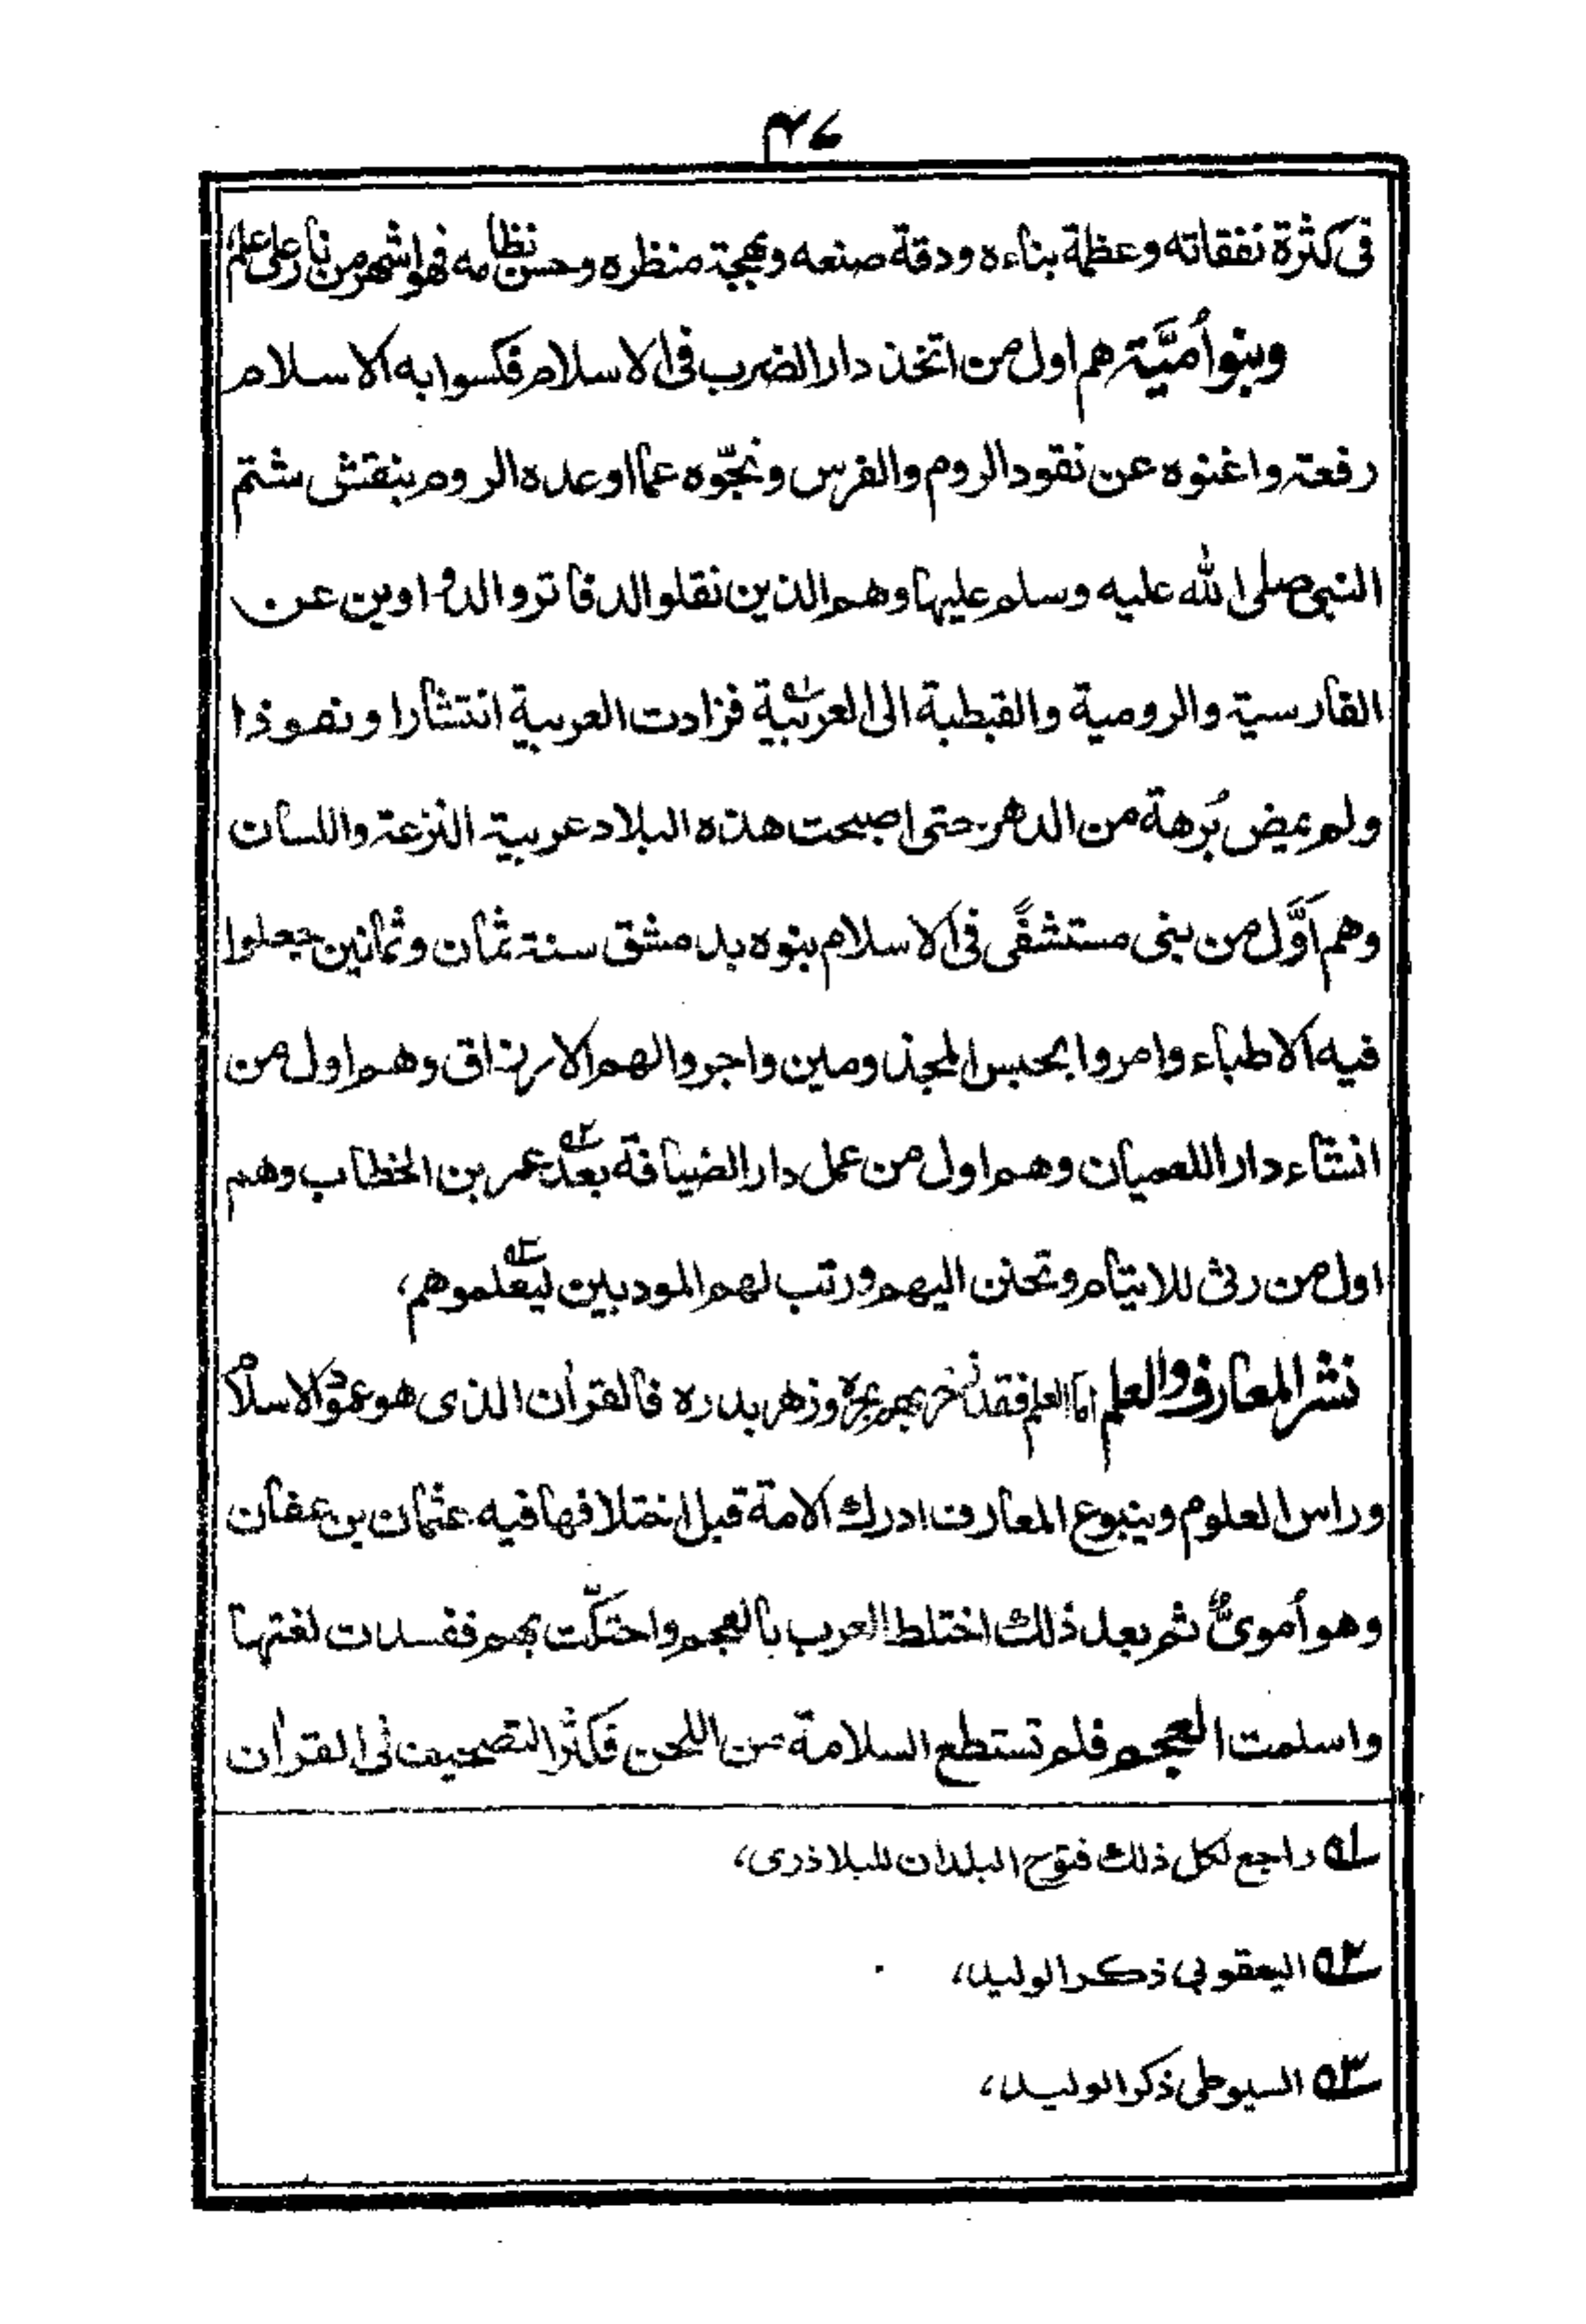 في كثرة نفقاته وعظمة بناءه ودقة صنعه وبهجة منظره وحسن نظامه فهو اشهر من نار على علم
وبنو أميَّة هم اول من اتخذ دار الضرب في الاسلام فكسوا به الاسلام
رفعة واغنوه عن نقود الروم والفرس ونجّوه عما اوعده الروم بنقش شتم
النبي صلى الله عليه وسلم عليها وهم الذين نقلوا الدفاتر والدواوين عن
الفارسية والرومية والقبطية الى العربية ١ه فزادت العربية انتشارا ونفوذا
ولم يمض بُرهة من الدهر حتى اصبحت هذه البلاد عربية النزعة واللسان
وهم اَوَّل من بنى مستشفًى في الاسلام بنوه بدمشق سنة ثمان وثمانين جعلوا
فيه الاطباء وامروا بحبس المجذومين واجروا لهم الارزاق وهم اول من
انشاء دار اللعميان وهم اول من عمل دار الضيافة بعد ٢ه عمر بن الخطاب وهم
اول من رثى للايتام وتحنن اليهم ورتب لهم المودبين ليعلموهم ٣ه،
نشر المعارف والعلم اما العلم فقد زخر بهم بحره وزهر بدره فالقرأن الذى هو عمود الاسلام
وراس العلوم وينبوع المعارف ادرك الامة قبل اختلافها فيه عثمان بن عفان
وهو أمويٌّ ثم بعد ذلك اختلط العرب بالعجم واحتكّت بهم ففسدت لغتها
واسلمت العجم فلم تستطع السلامة من اللحن فكثر التصحيف في القرأن
١ه راجع لكل ذلك فتوح البلدان للبلاذرى،
٢ه اليعقوبي ذكر الوليد،
٣ه السيوطى ذكر الوليد،